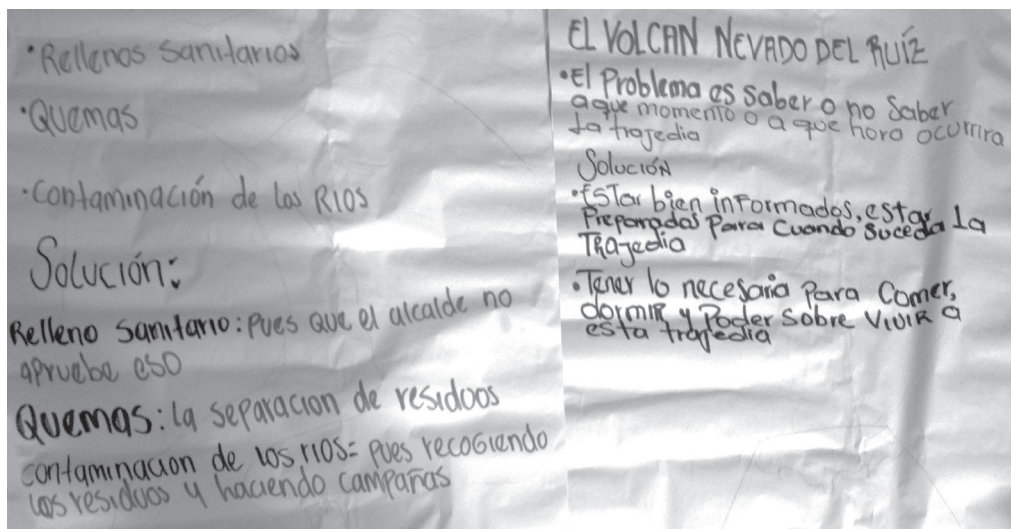 •Rellenos Sanitarios
•Quemas
•Contaminación de los RIOS
Solución:
Relleno Sanitario: Pues que el alcalde no
aprueba eso
Quemas: la separacion de residuos
contaminacion de los rios= pues recogiendo
los residuos y haciendo campañas
EL VOLCAN NEVADO DEL RUÍZ
•El Problema es saber o no Saber
a que momento o a que hora ocurrira
La tragedia
Solución
•Estar bien informados, estar
Preparados Para Cuando Suceda La
TRagedia
•Tener lo necesario Para Comer,
dormiR y Poder Sobre ViviR a
esta tragedia